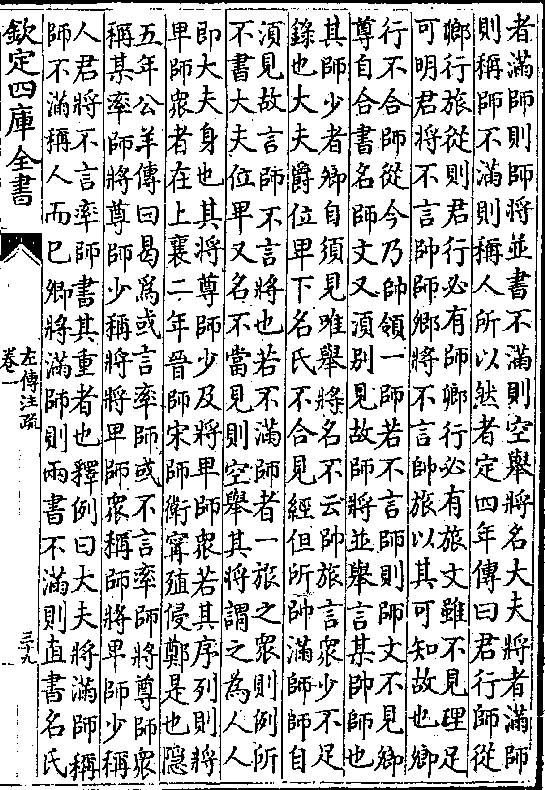 者滿師則師將並書不滿則空舉將名大夫將者滿師
則稱師不滿則稱人所以然者定四年傳曰君行師從
卿行旅從則君行必有師卿行必有旅文雖不見理足
可明君將不言帥師卿將不言帥旅以其可知故也卿
行不合師從今乃帥領一師若不言師則師文不見卿
尊自合書名師文又湏別見故師將並舉言某帥師也
其師少者卿自須見唯舉將名不云帥旅言衆少不足
錄也大夫爵位卑下名氏不合見經但所帥滿師師自
湏見故言師不言將也若不滿師者一旅之衆則例所
不書大夫位卑又名不當見則空舉其將謂之為人人
即大夫身也其將尊師少及將卑師衆若其序列則將
卑師衆者在上襄二年晉師宋師衛甯殖侵鄭是也隱
五年公羊傳曰曷爲或言率師或不言率師將尊師衆
稱某率師將尊師少稱將將卑師衆稱師將卑師少稱
人君將不言率師書其重者也釋例曰大夫將滿師稱
師不滿稱人而已卿將滿師則兩書不滿則直書名氏
欽定四庫全書
左傳注疏
卷一
三十九